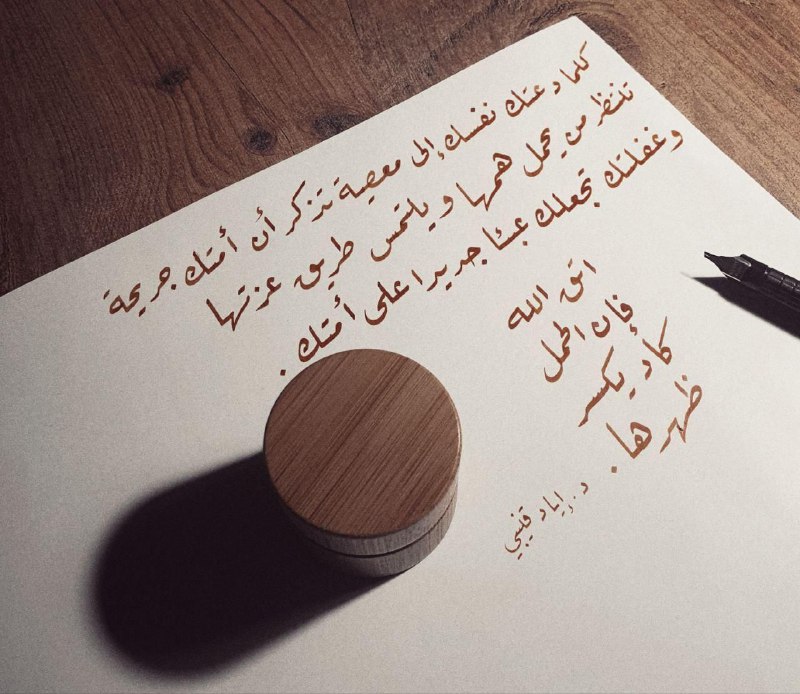 كلما دعتك نفسك إلى معصية تذكر أن أمتك جريحة
تنتظر من يحمل همها ويلتمس طريق عزتها
وغفلتك تجعلك عبئا جديرا على أمتك.
اتق الله
فإن الحمل
كاد يكسر
ظهرها.
د. إياد قنيبي